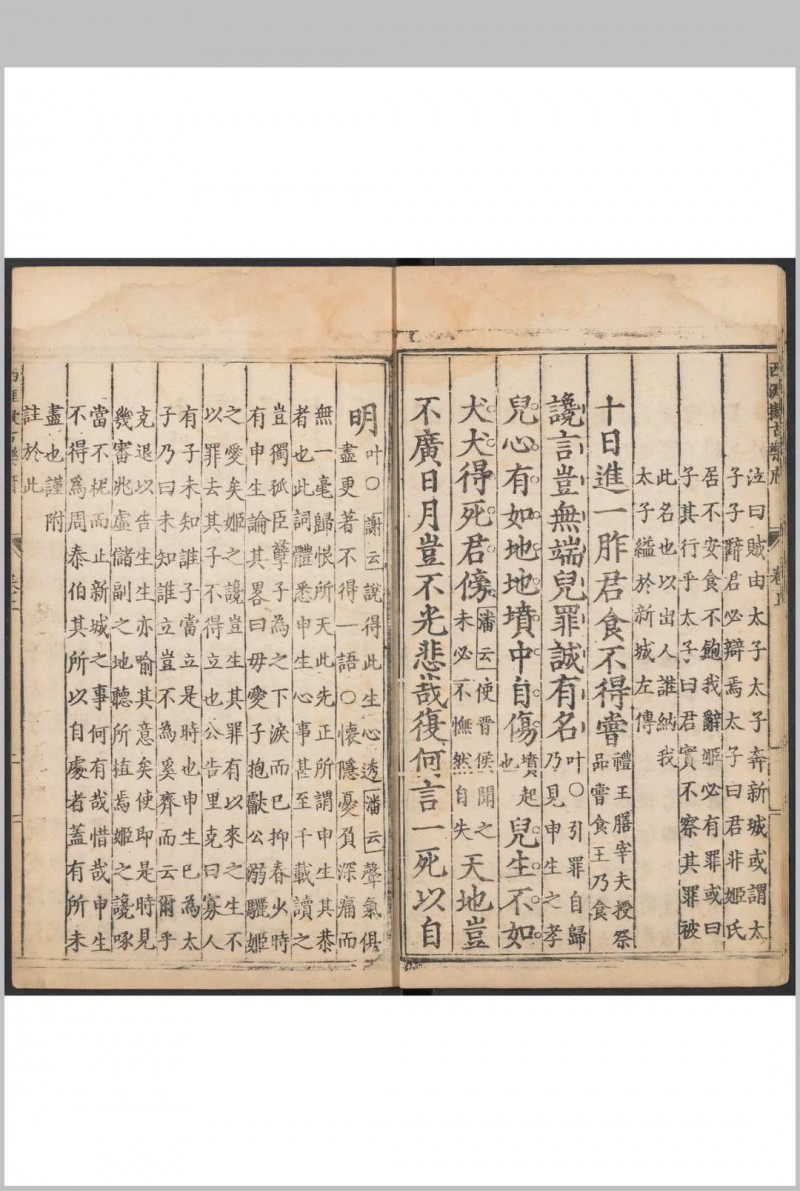 西涯擬古樂府 卷上
泣曰賊由太子太子奔新城或謂太
子子辭君必辯焉太子曰君非姬氏
居不安食不飽我辭姬必有罪或曰
子其行乎太子曰君實不察其罪被
此名也以出人誰納我
太子縊於新城左傳
十日進一胙君食不得嘗禮王膳宰夫授祭品嘗食王乃食
讒言豈無端兒罪誠有名叶○引罪自歸乃見申生之孝
兒心有如地地墳中自傷墳起也兒生不如
犬犬得死君傍潘云使晉侯聞之未必不憮然自失天地豈
不廣日月豈不光悲哉復何言一死以自
明叶○謝云說得此生心透潘云聲氣俱
盡更著不得一語○懷隱憂負深痛而
無一毫歸恨所天此先正所謂申生其恭
者也此詞體悉申生心事甚至千載讀之
豈獨孤臣孽子為之下淚而已抑春火時
有申生論其畧曰毋愛子抱獻公溺驪姬
之愛矣姬之讒豈生其罪有以來之生不
以罪去其子不得立也公告里克曰寡人
有子未知誰子當立是時也申生已為太
子乃曰未知誰立豈不為奚齊而云爾乎
克退以告生生亦喻其意矣使即是時見
幾審兆虛儲副之地聽所植焉姬之讒啄
當不柅而止新城之事何有哉惜哉申生
不得為周泰伯其所以自處者蓋有所未
盡也謹附
註於此